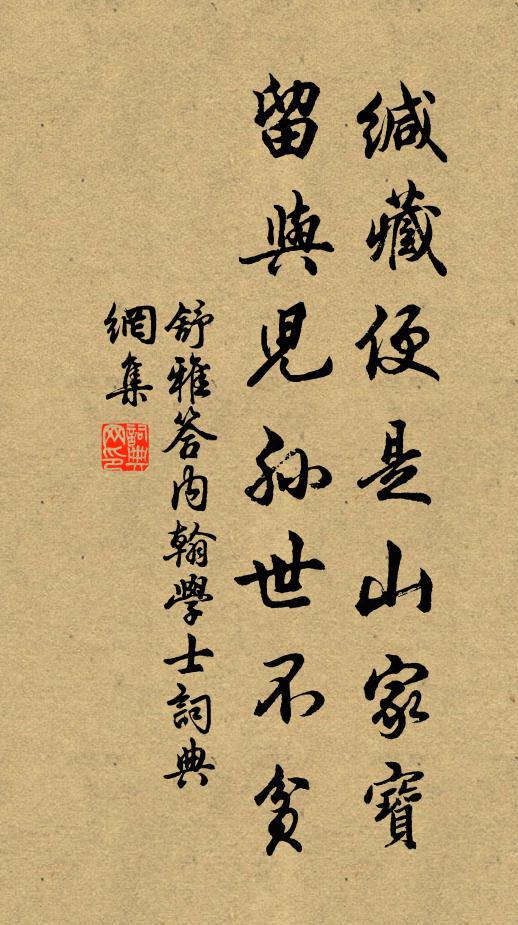 緘藏便是山家寶
留與兒孫世不貧
舒雅答內翰學士詞典
網集
詞典
网印